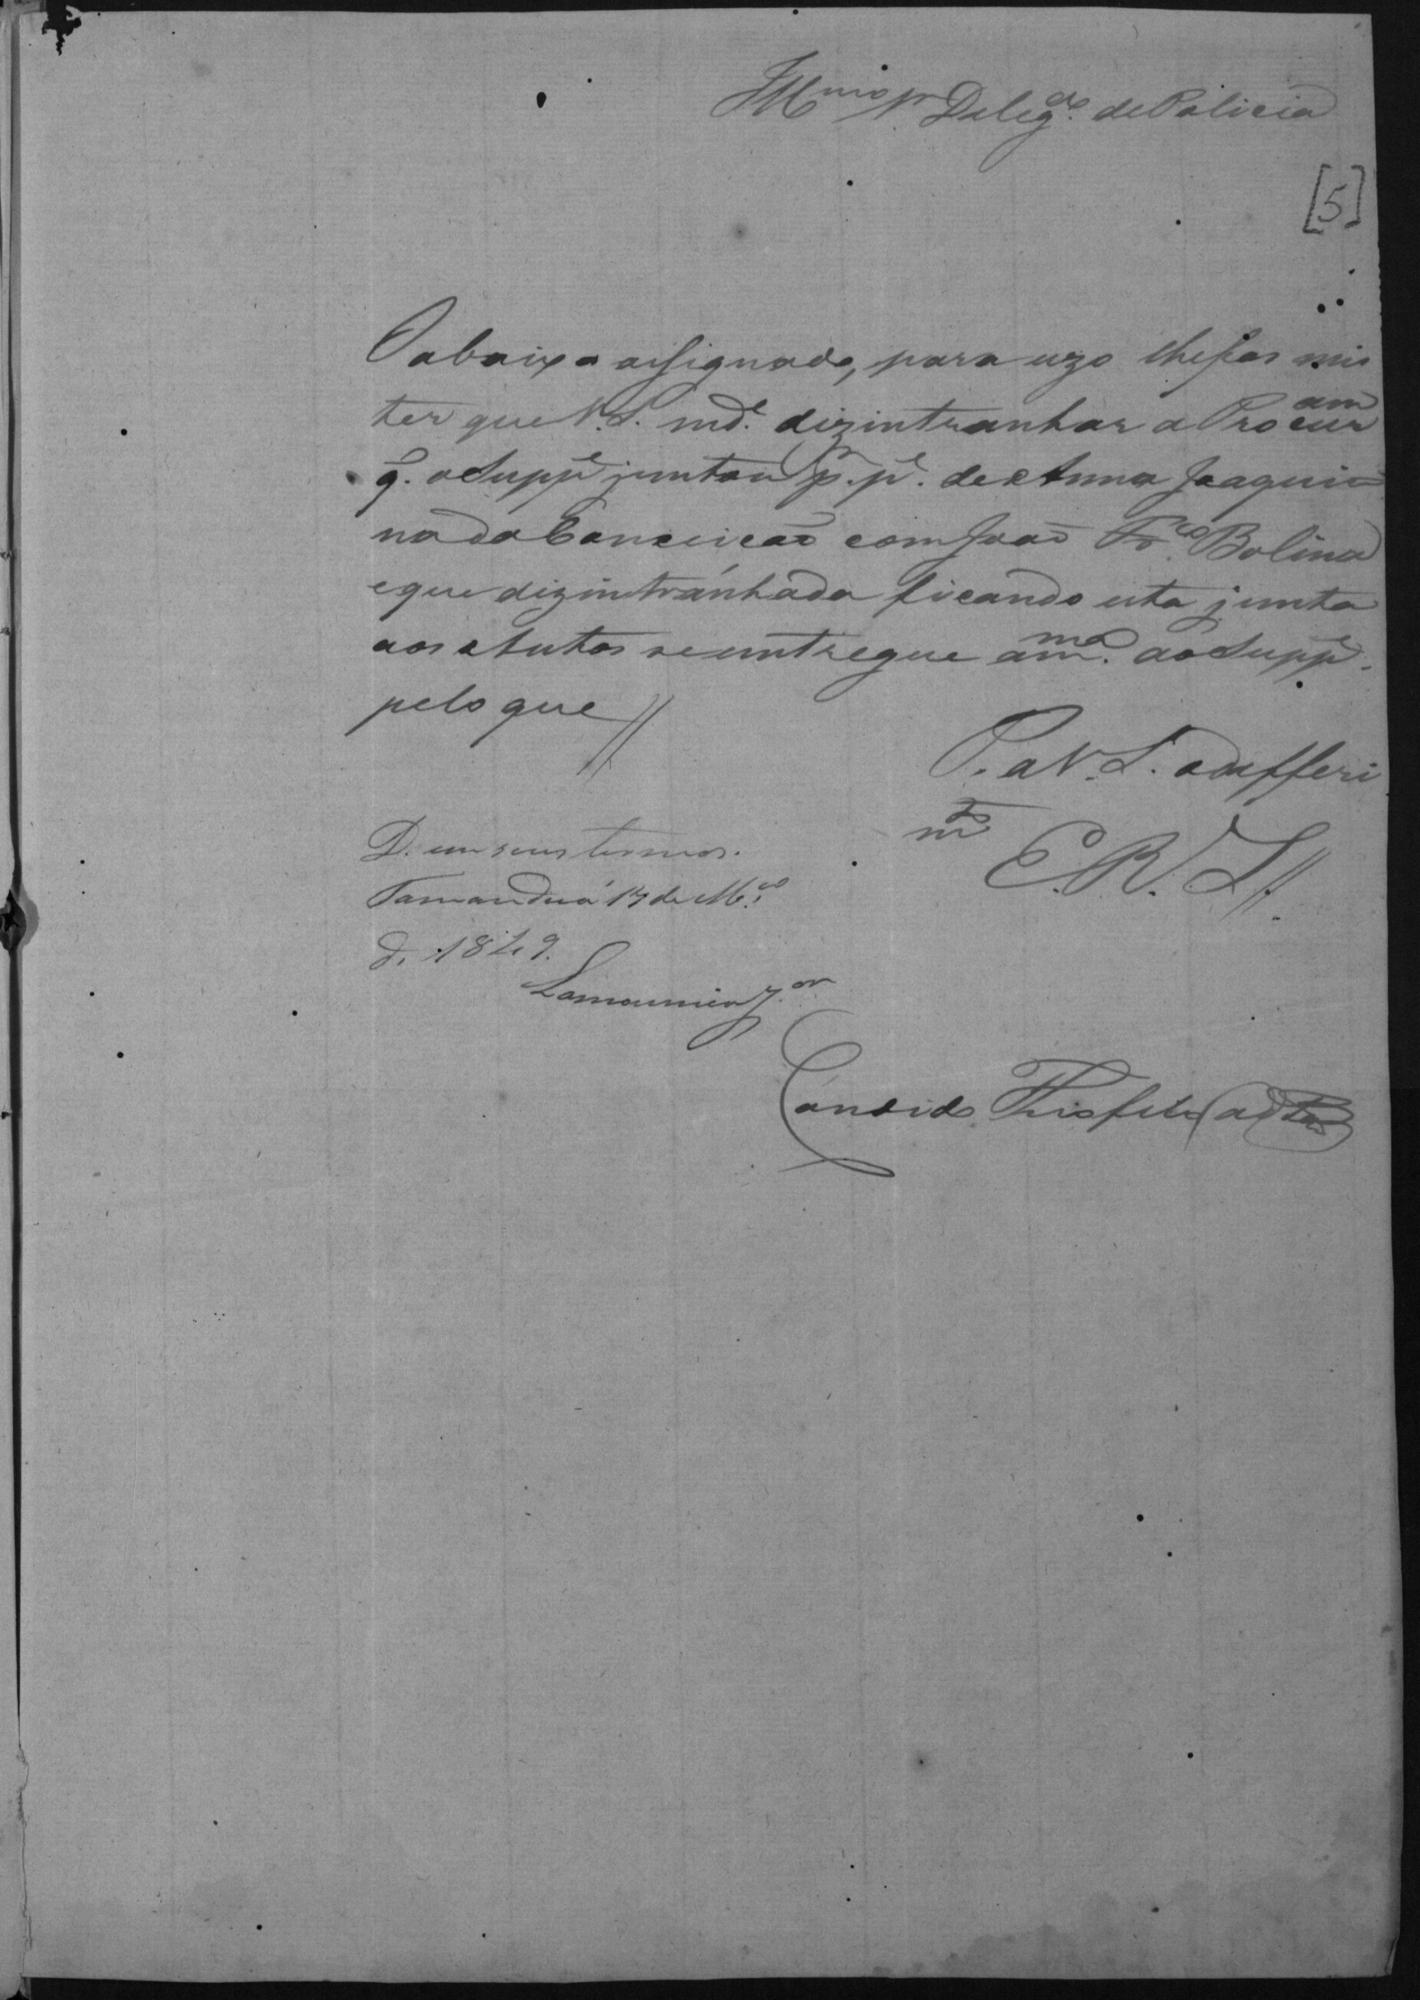 Illmo Sr Delegdo de Policia
[5]
O abaixo assignado, para uzo lhe fas mis
ter que V. S. mde. dizintranhar a Procuram
q. o Suppe juntou pr. pe. de Anna Joaqui=
na da Conceicaõ com Joaõ Frco Bolina
e que dizintránhada ficando esta junta
aos Autos se entregue a mma. ao Suppe.
pelo que //
P. a V. S. o defferi
mto
E. R. J. //
D. em seus termos.
Tamanduá 17 de Mço
de 1849.
Lamounier Jor
Candido Theofilo